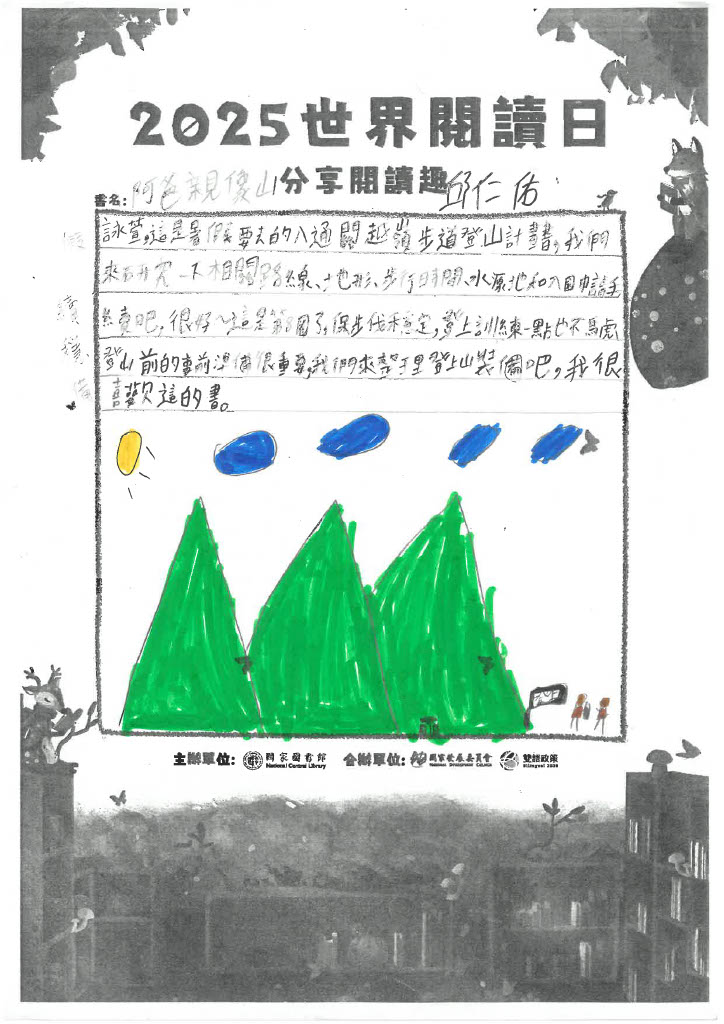 2025世界閱讀日
分享閱讀趣
書名: 阿爸親傻山
邱仁佑
讀
詠萱,這是暑假要去的八通關越嶺步道登山計畫,我們
來研究一下相關路線、土地形、步行日時間、水源地和入園申請手
續吧,很好~這是第8圈了,保步伐穩定,登上訓練一點也不馬虎
登山前的事前準備很重要,我們來整理登上山裝備吧,我很
喜歡這的書。
主辦單位: 國家圖書館
National Central Library
合辦單位: 國家發展委員會
NATIONAL DEVELOPMENT COUNCIL
雙語政策
Bilingual 2030